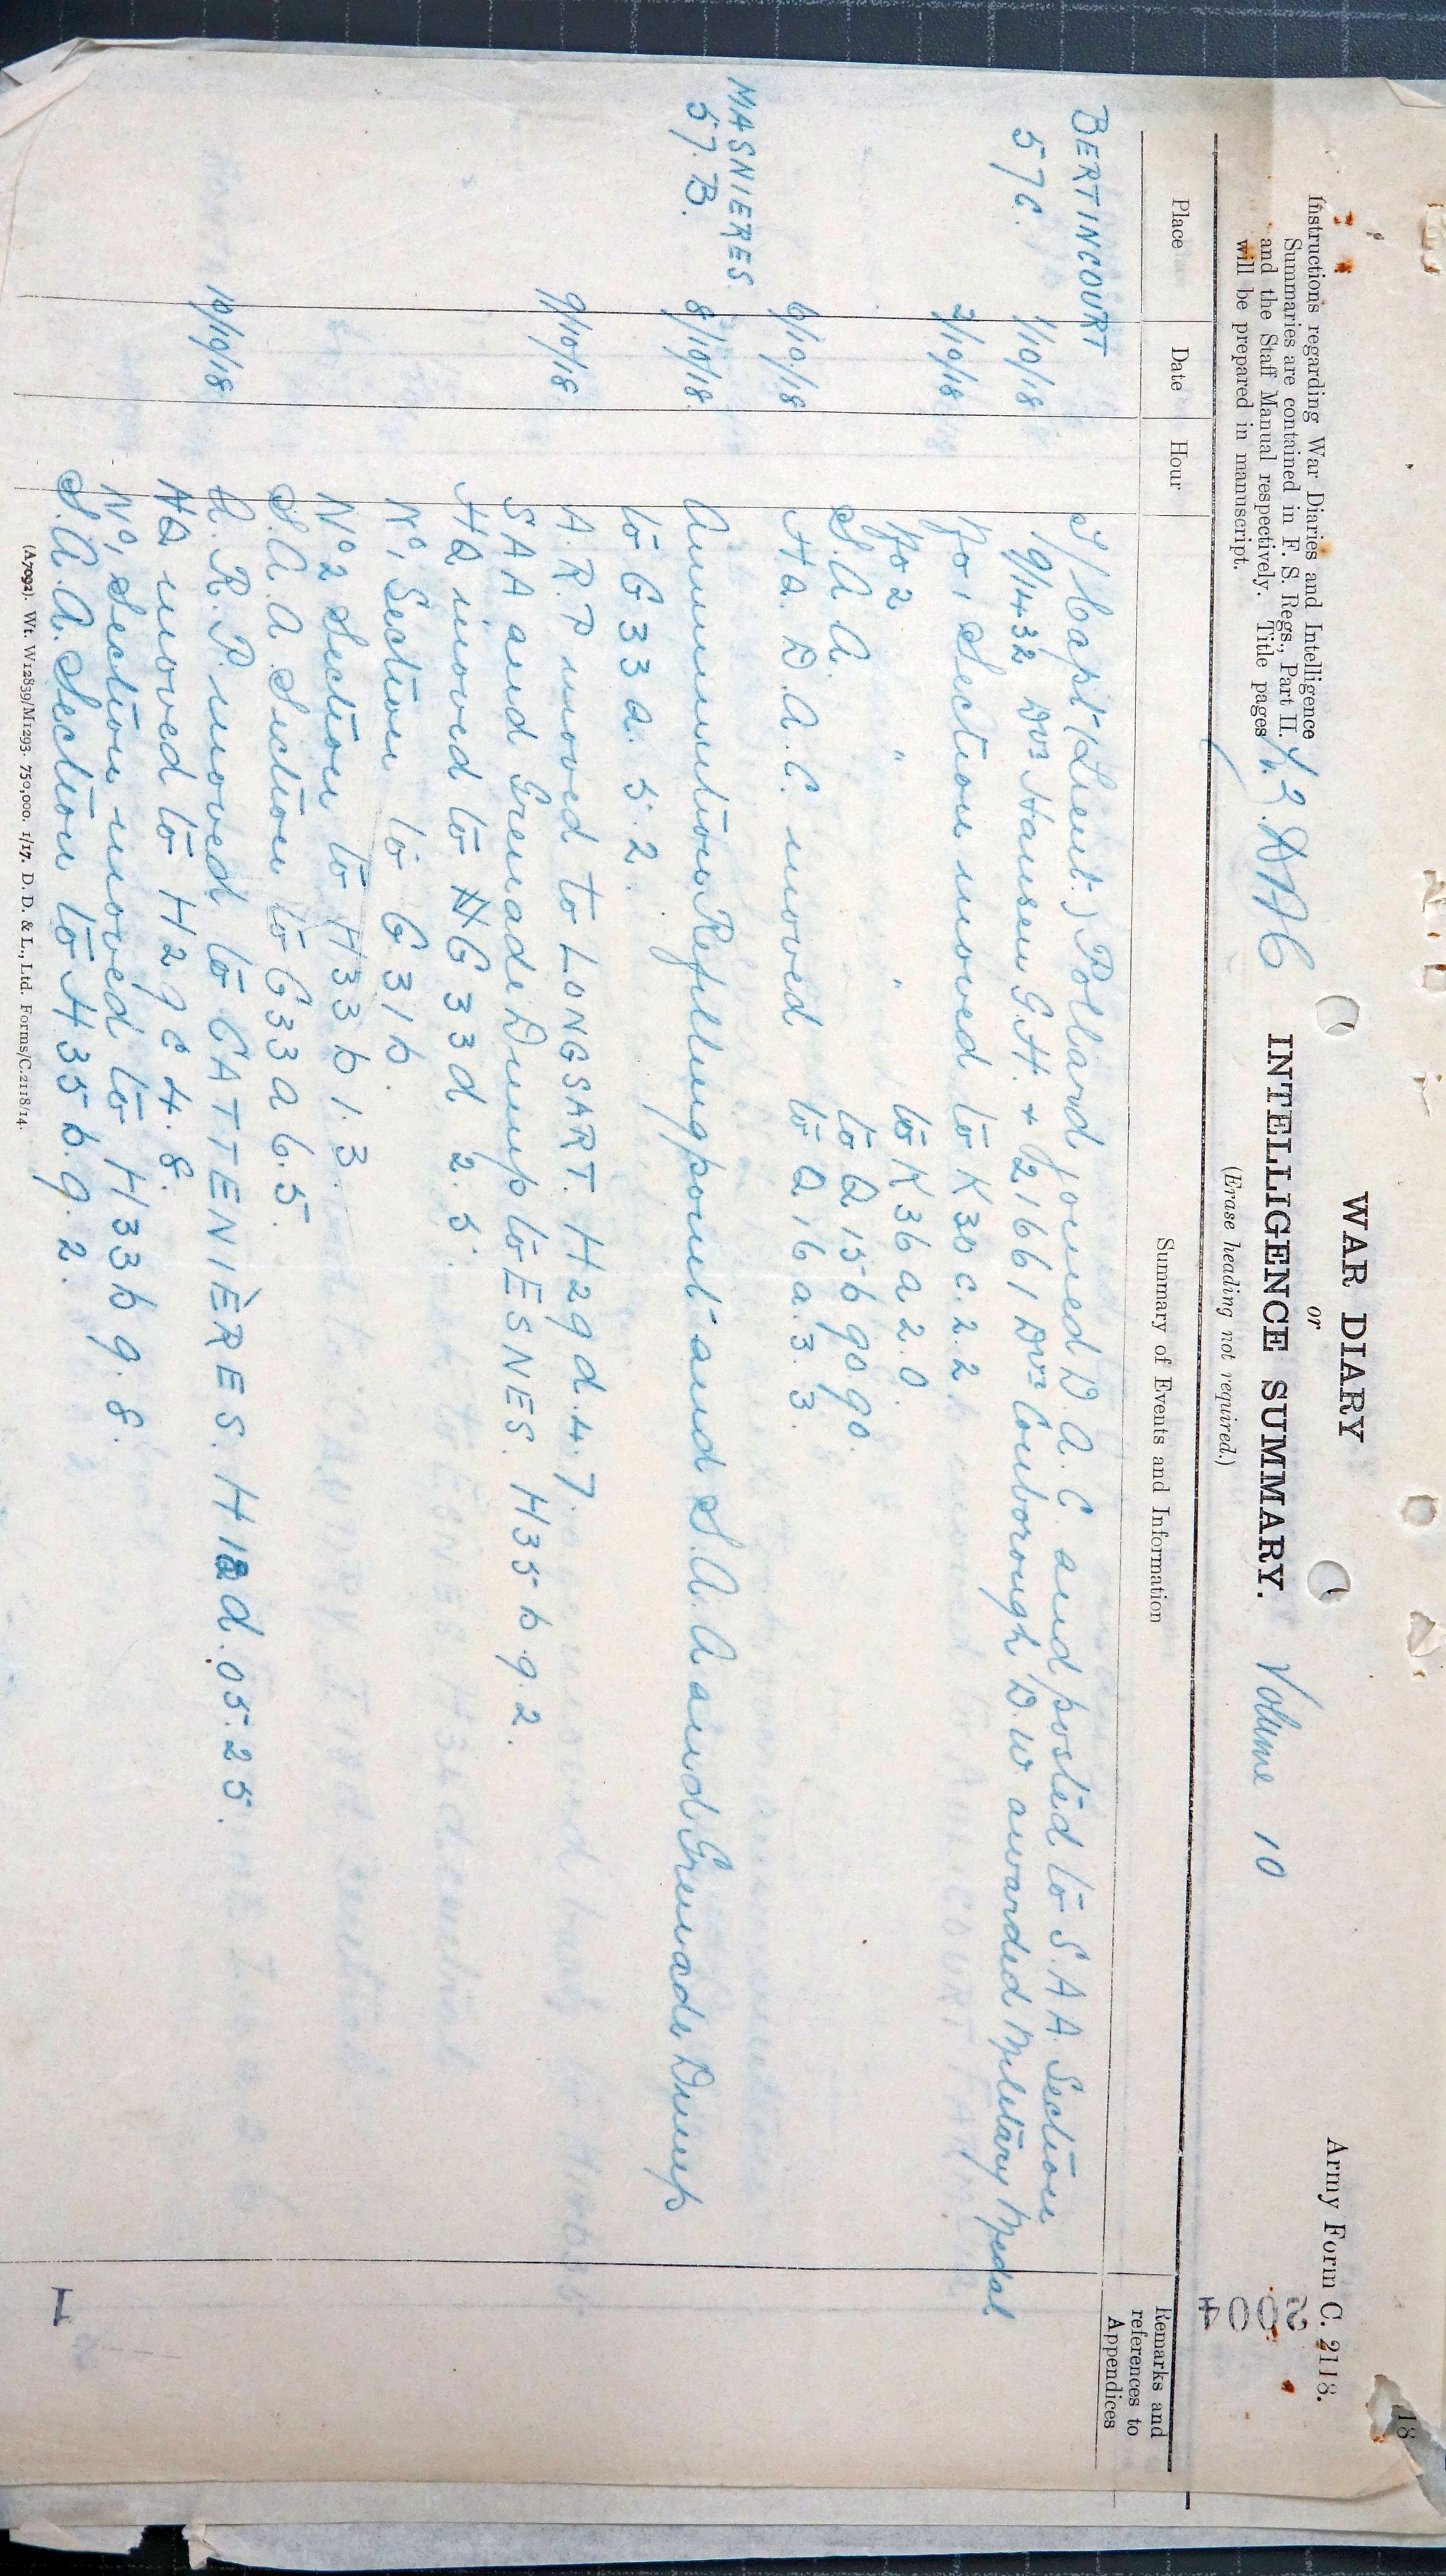 Army Form C. 2118.
WAR DIARY
or
INTELLIGENCE SUMMARY.
(Erase heading not required.)
Instructions regarding War Diaries and Intelligence
Summaries are contained in F. S. Regs., Part II.
and the Staff Manual respectively. Title pages
will be prepared in manuscript.
Volume 10
2004
18
Place Date Hour Summary of Events and Information Remarks and references to Appendices
BERTINCOURT T/Capt (Lieut.) Pollard joined D.A.C. and posted to S.A.A. Section
57C. 1/10/18 19/1432 Dvr Hansen G.H. + 21661 Dvr Conborough D.W awarded Military Medal
2/10/18 No 1 Section moved to K30 c. 2.2.
No 2 " " to K36 a 2.0.
S.A.A. to Q15 b 90.90.
6/10/18 HQ. D.A.C. moved to Q16 a.3.3.
MASNIERES
57.B. 8/10/18. Ammunition Refilling point and S.A.A and Grenade Dump
to G33 a. 5.2.
9/10/18 A.R.P moved to LONGSART. H29 d.4.7.
SAA and Grenade Dump to ESNES. H35 b.9.2.
HQ moved to G33d 2.5.
No 1 Section to G31b.
No 2 Section to H33 b 1.3.
S.A.A. Section to G33a 6.5.
10/10/18 A.R.P. moved to CATTENIÈRES. d.05.25.
HQ moved to H29 c 4.8.
No 1 Section moved to H33b 9.8.
S.A.A. Section to H35 b.9.2.
(A7092). Wt. W12839/M1293. 750,000. 1/17. D. D. & L., Ltd. Forms/C.2118/14.
1